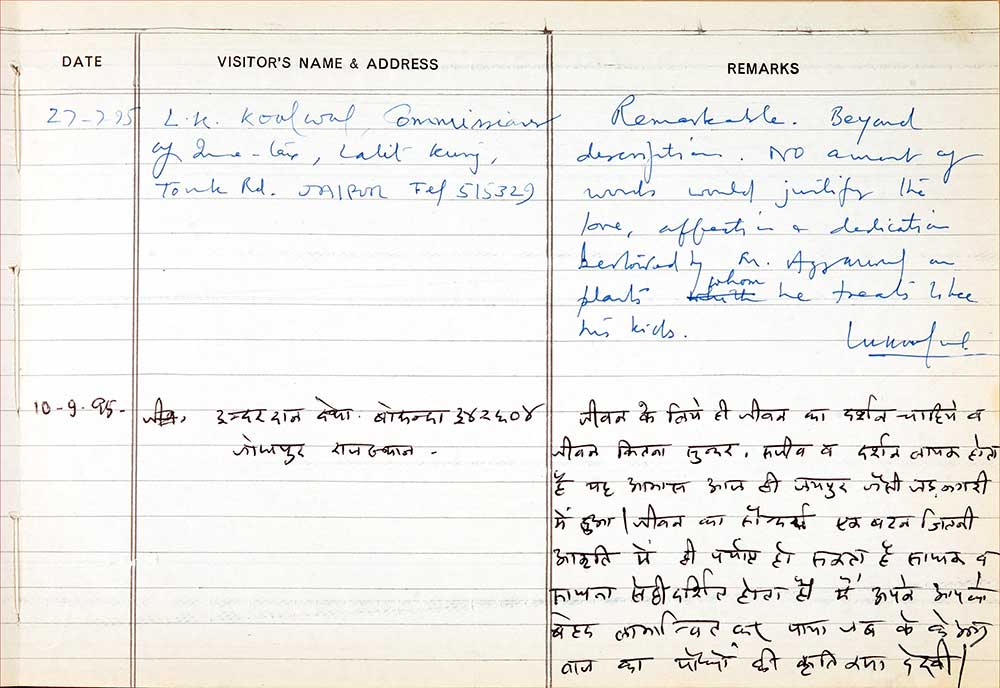 DATE
VISITOR'S NAME & ADDRESS
REMARKS
27-7-95
L.K. Koolwal, Commissioner
of Income-tax, Lalit Kunj,
Tonk Rd. JAIPUR Tel 515329
Remarkable. Beyond
description. NO amount of
words would justify the
love, affection & dedication
bestowed by Mr. Aggarwal on
plants whom he treats like
his kids.
10-9-95-
इन्दरदान देथा. बोरून्दा ३४२६०४
जोधपुर राजस्थान -
जीवन के लिये ही जीवन का दर्शन चाहिये व
जीवन कितना सुन्दर, सजीव व दर्शन लायक होता
है यह आभास आज ही जयपुर जैसी जड़ नगरी
में हुआ। जीवन का सौन्दर्य एक बटन जितनी
आकृति में ही पर्याप्त हो सकता है साधक व
साधना से ही दर्शित होता है। मैं अपने आपको
बेहद लाभान्वित कर पाया जब के
का पौधों की कृति देखी।